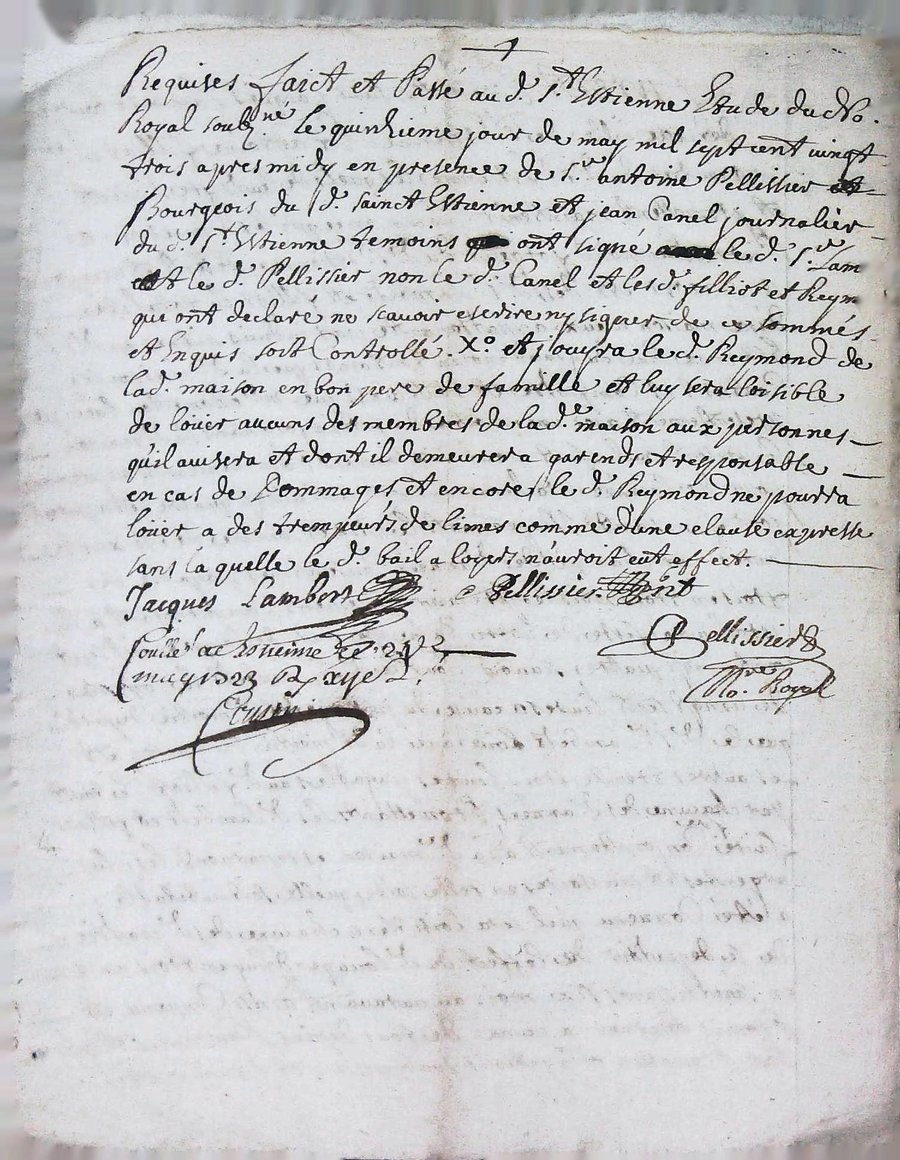 Requises faict et Passé au d. St. Estienne Etude du d. No.
Royal soubz.né Le quinzieme jour de may mil sept cent vingt
trois apres midy en presence de Sr. antoine Pellissier
Bourgeois du d. sainct Estienne et jean Canel journalier
du d. St. Estienne temoins ont signé le d. Sr. Lam
et le d. Pellissier non le d. Canel et les d. filliot et Reym
qui ont declaré ne scavoir escrire ny signer de ce sommés
et Enquis soit Controllé. Xo. et jouyra le d. Reymond de
la d. maison en bon pere de famille et luy sera loisible
de loüer aucuns des membres de la de. maison aux personnes
qu'il avisera et dont il demeurera garend et responsable
en cas de Dommages et encores le d. Reymond ne pourra
loüer a des trempeurs de limes comme d'une clause expresse
sans laquelle le d. bail a loyers n'auroit eut effect.
Jacques Lambert Pellissier pnt
Pellissier
Conllé a St Estienne le 21
may 1723
No.re Royal